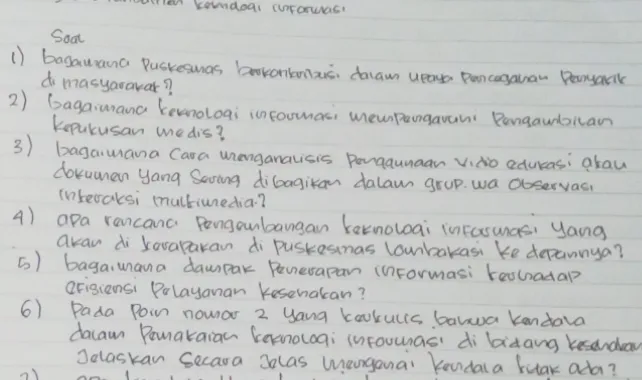 teknologi informasi
Soal
1) bagaimana Puskesmas berkontribusi dalam upaya pencegahan Penyakit
di masyarakat?
2) bagaimana teknologi informasi mempengaruhi Pengambilan
keputusan medis?
3) bagaimana Cara menganalisis penggunaan vidio edukasi atau
dokumen yang Sering dibagikan dalam grup wa observasi
interaksi multimedia?
4) apa rencana Pengembangan teknologi informasi yang
akan di terapakan di Puskesmas Lombakasi ke depannya?
5) bagaimana dampak Penerapan informasi terhadap
efisiensi Pelayanan kesehatan?
6) Pada Poin nomor 2 yang tertulis bahwa kendala
dalam Pemakaian teknologi informasi di bidang kesehatan
Jelaskan Secara Jelas mengenai kendala tidak ada?
7)